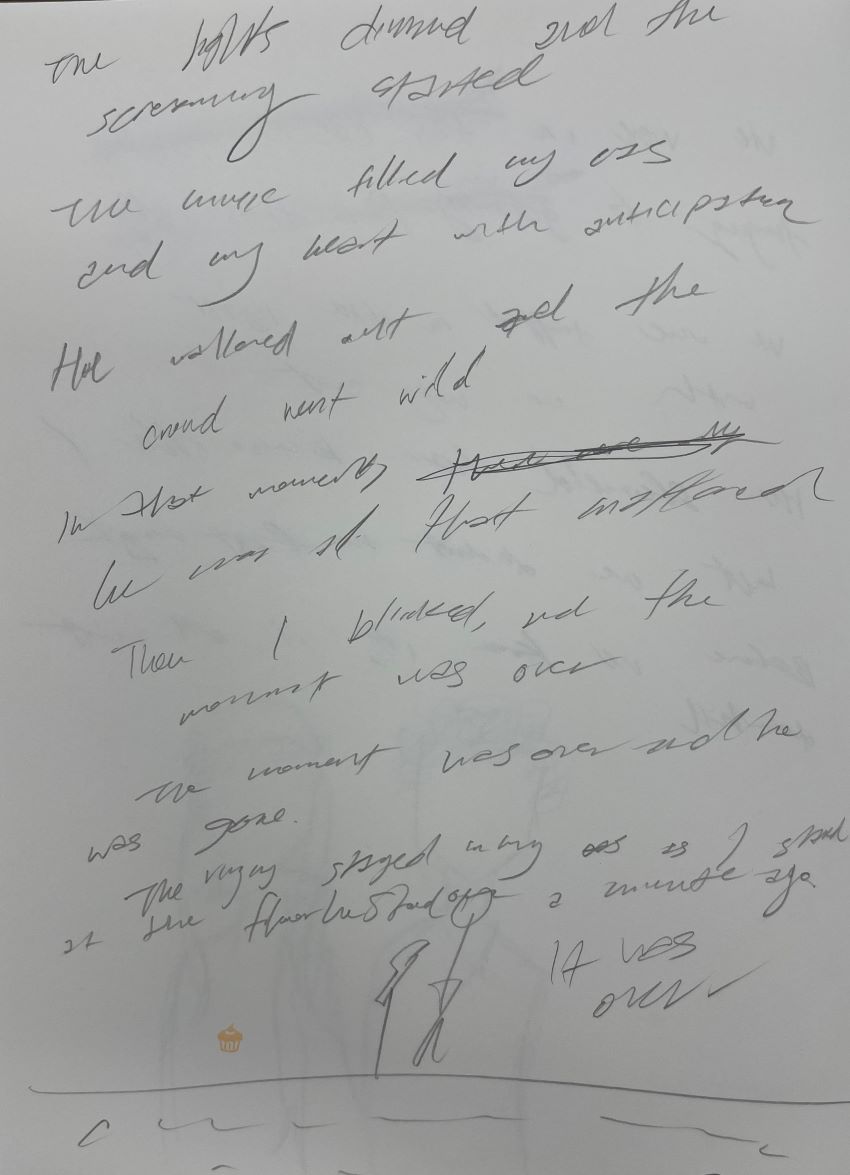 The lights dimmed and the
screaming started
The music filled my ears
and my heart with anticipation
He walked out and the
crowd went wild
In that moment
he was all that mattered
Then I blinked, and the
moment was over
The moment was over and he
was gone.
The ringing stayed in my ears as I stared
at the floor he stood on a minute ago
It was
over